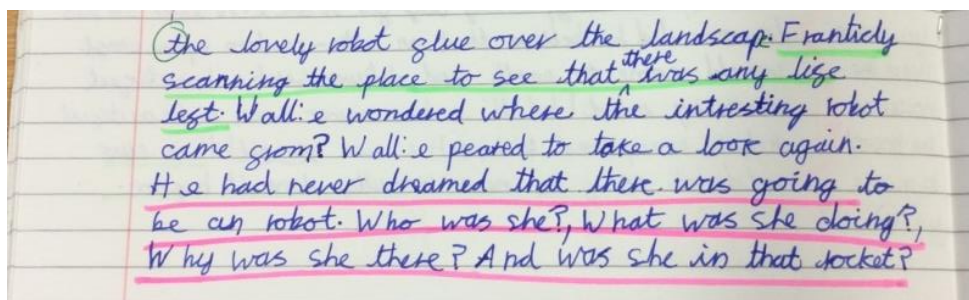 the lovely robot glue over the landscape. Franticly
scanning the place to see that there was any lige
legt. Wall:e wondered where the intresting robot
came grom? Wall:e peared to take a look again.
He had never dreamed that there was going to
be an robot. Who was she?, What was she doing?,
Why was she there? And was she in that rocket?